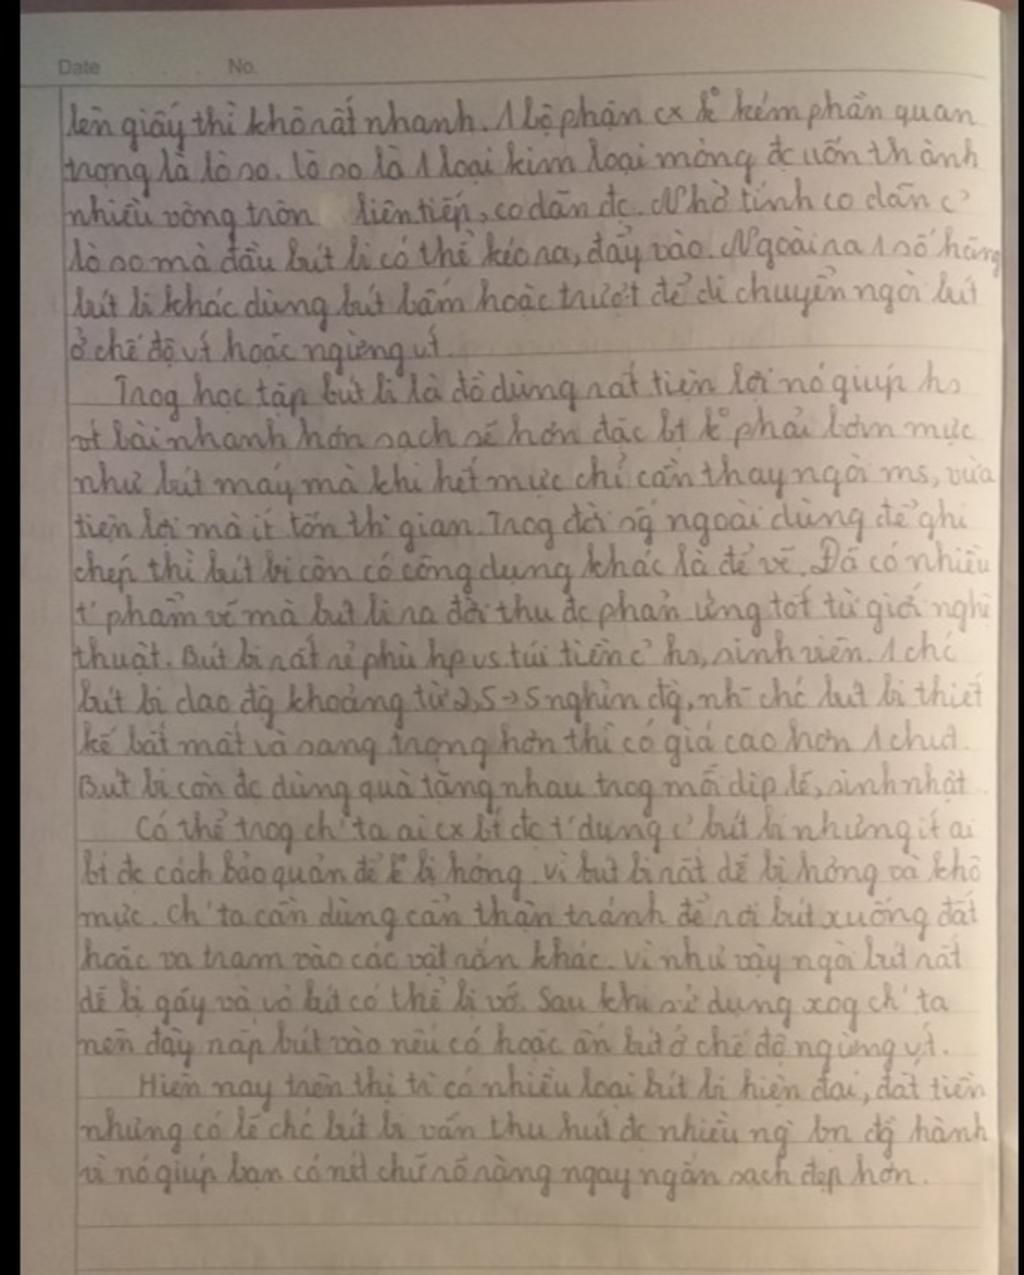 Date No.
lên giấy thì khô rất nhanh. 1 bộ phận cx k° kém phần quan
trọng là lò so. lò so là 1 loại kim loại mỏng đc uốn thành
nhiều vòng tròn liên tiếp, co dãn đc. Nhờ tính co dãn c'
lò so mà đầu bút bi có thể kéo ra, đẩy vào. Ngoài ra 1 số hãng
bút bi khác dùng bút bấm hoặc trượt để di chuyển ngòi bút
ở chế độ vt hoặc ngừng vt.
Trog học tập bút bi là đồ dùng rất tiện lợi nó giúp hs
vt bài nhanh hơn sạch sẽ hơn đặc bt k° phải bơm mực
như bút máy mà khi hết mực chỉ cần thay ngòi ms, vừa
tiện lợi mà ít tốn th' gian. Trog đời sg ngoài dùng để ghi
chép thì bút bi còn có công dụng khác là để vẽ. Đã có nhiều
t' phẩm vẽ mà bút bi ra đời thu đc phản ứng tốt từ giới nghệ
thuật. Bút bi rất rẻ phù hp vs túi tiền c' hs, sinh viên. 1 chć
bút bi dao độg khoảng từ 2,5 → 5 nghìn đg, nh~ chć bút bi thiết
kế bắt mắt và sang trọng hơn thì có giá cao hơn 1 chút.
Bút bi còn đc dùng quà tặng nhau trog mỗi dịp lễ, sinh nhật.
Có thể trog ch' ta ai cx bt đc t' dụng c' bút bi nhưng ít ai
bt đc cách bảo quản để k° bị hỏng. vì bút bi rất dễ bị hỏng và khô
mực. Ch' ta cần dùng cẩn thận tránh để rơi bút xuống đất
hoặc va trạm vào các vật rắn khác. vì như vậy ngòi bút rất
dễ bị gãy và vỏ bút có thể bị vỡ. Sau khi sử dụng xog ch' ta
nên đậy nắp bút vào nếu có hoặc ấn bút ở chế độ ngừng vt.
Hiện nay trên thị tr' có nhiều loại bút bi hiện đại, đắt tiền
nhưng có lẽ chć bút bi vẫn thu hút đc nhiều ng' bn đg hành
vì nó giúp bạn có nét chữ rõ ràng ngay ngắn sạch đẹp hơn.